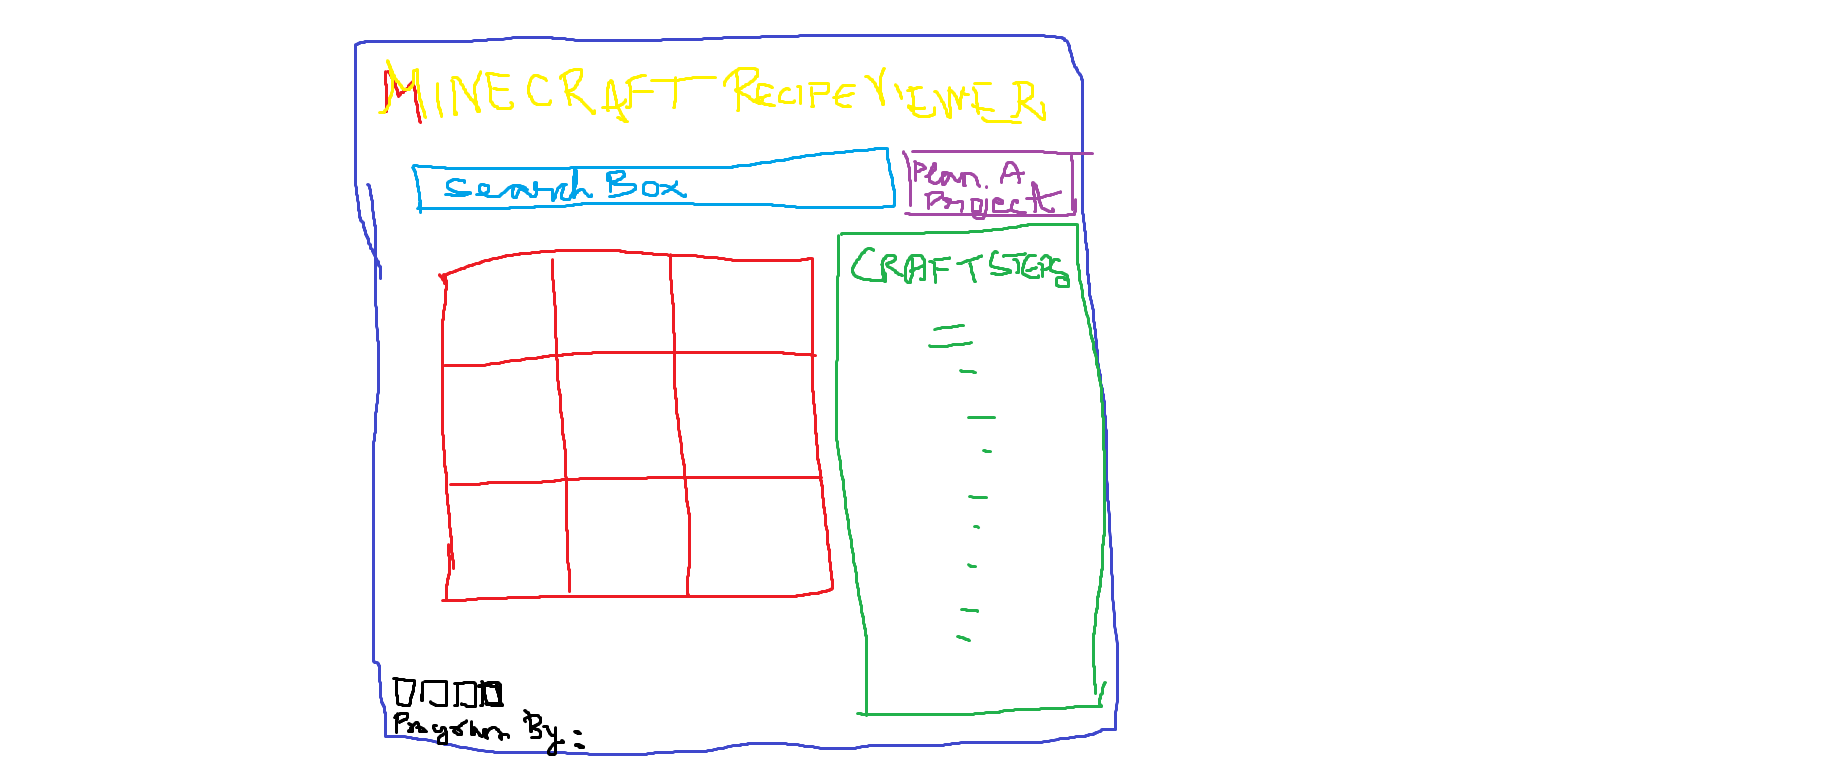 MINECRAFT RECIPE VIEWER
Search Box
Plan. A
Project
CRAFT STEPS
Program By: